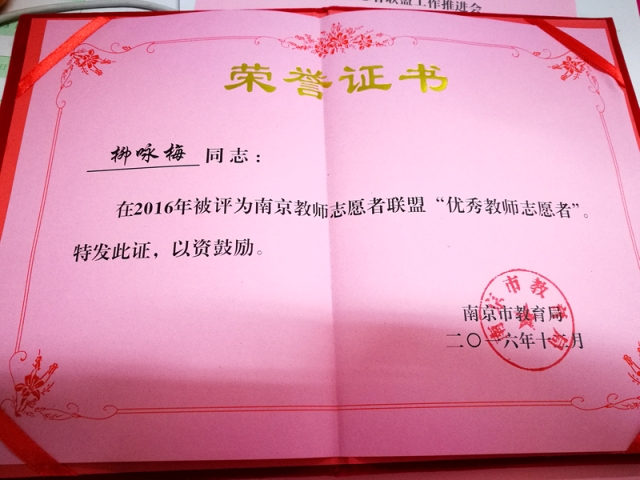 者联盟工作推进会
荣誉证书
柳咏梅 同志：
在2016年被评为南京教师志愿者联盟“优秀教师志愿者”。
特发此证，以资鼓励。
南京市教育局
二〇一六年十二月
南京市教育局